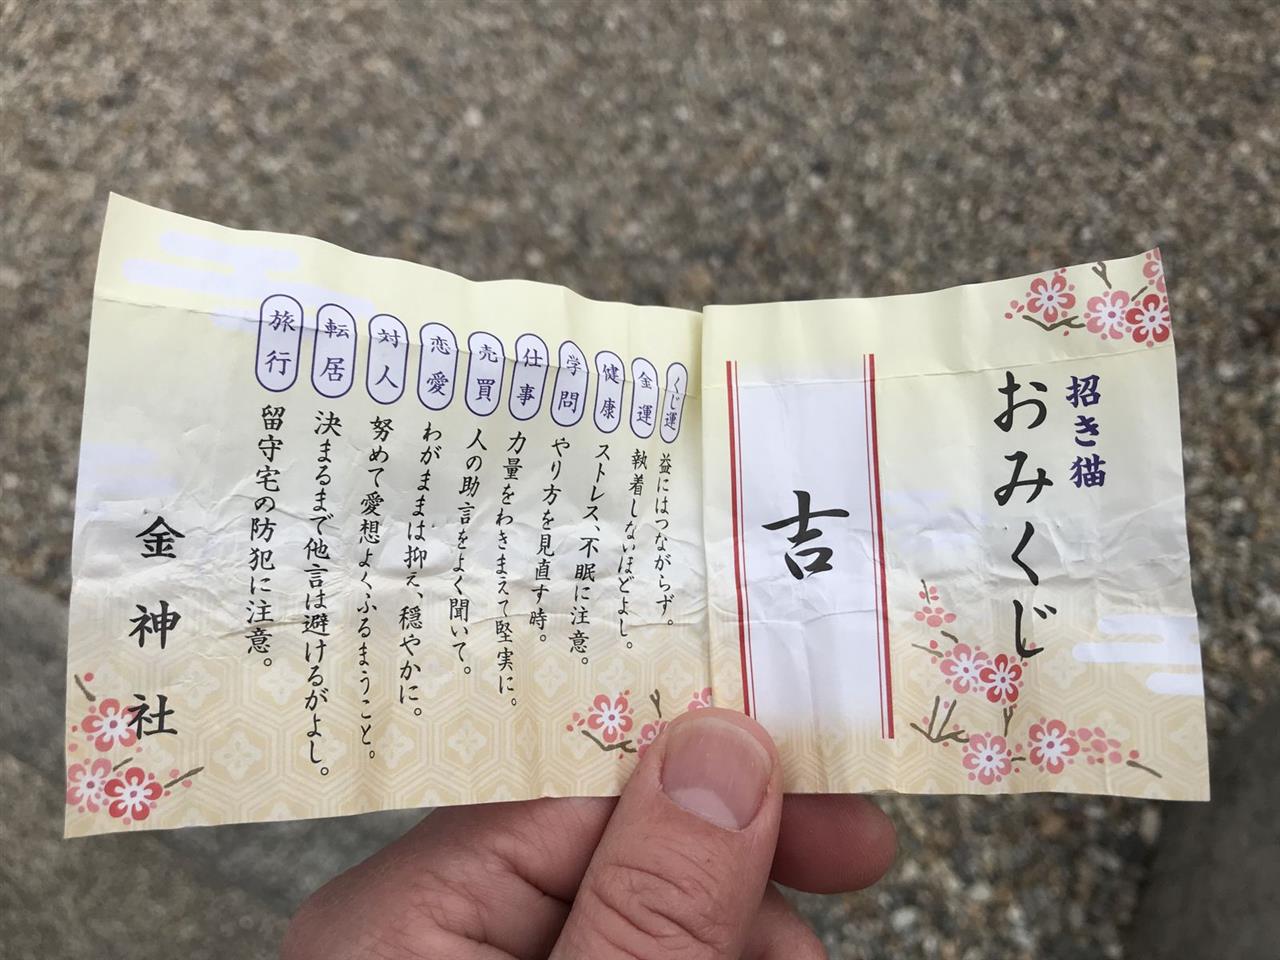 招き猫
おみくじ
吉
くじ運
益にはつながらず。
金運
執着しないほどよし。
健康
ストレス、不眠に注意。
学問
やり方を見直す時。
仕事
力量をわきまえて堅実に。
売買
人の助言をよく聞いて。
恋愛
わがままは抑え、穏やかに。
対人
努めて愛想よくふるまうこと。
転居
決まるまで他言は避けるがよし。
旅行
留守宅の防犯に注意。
金神社